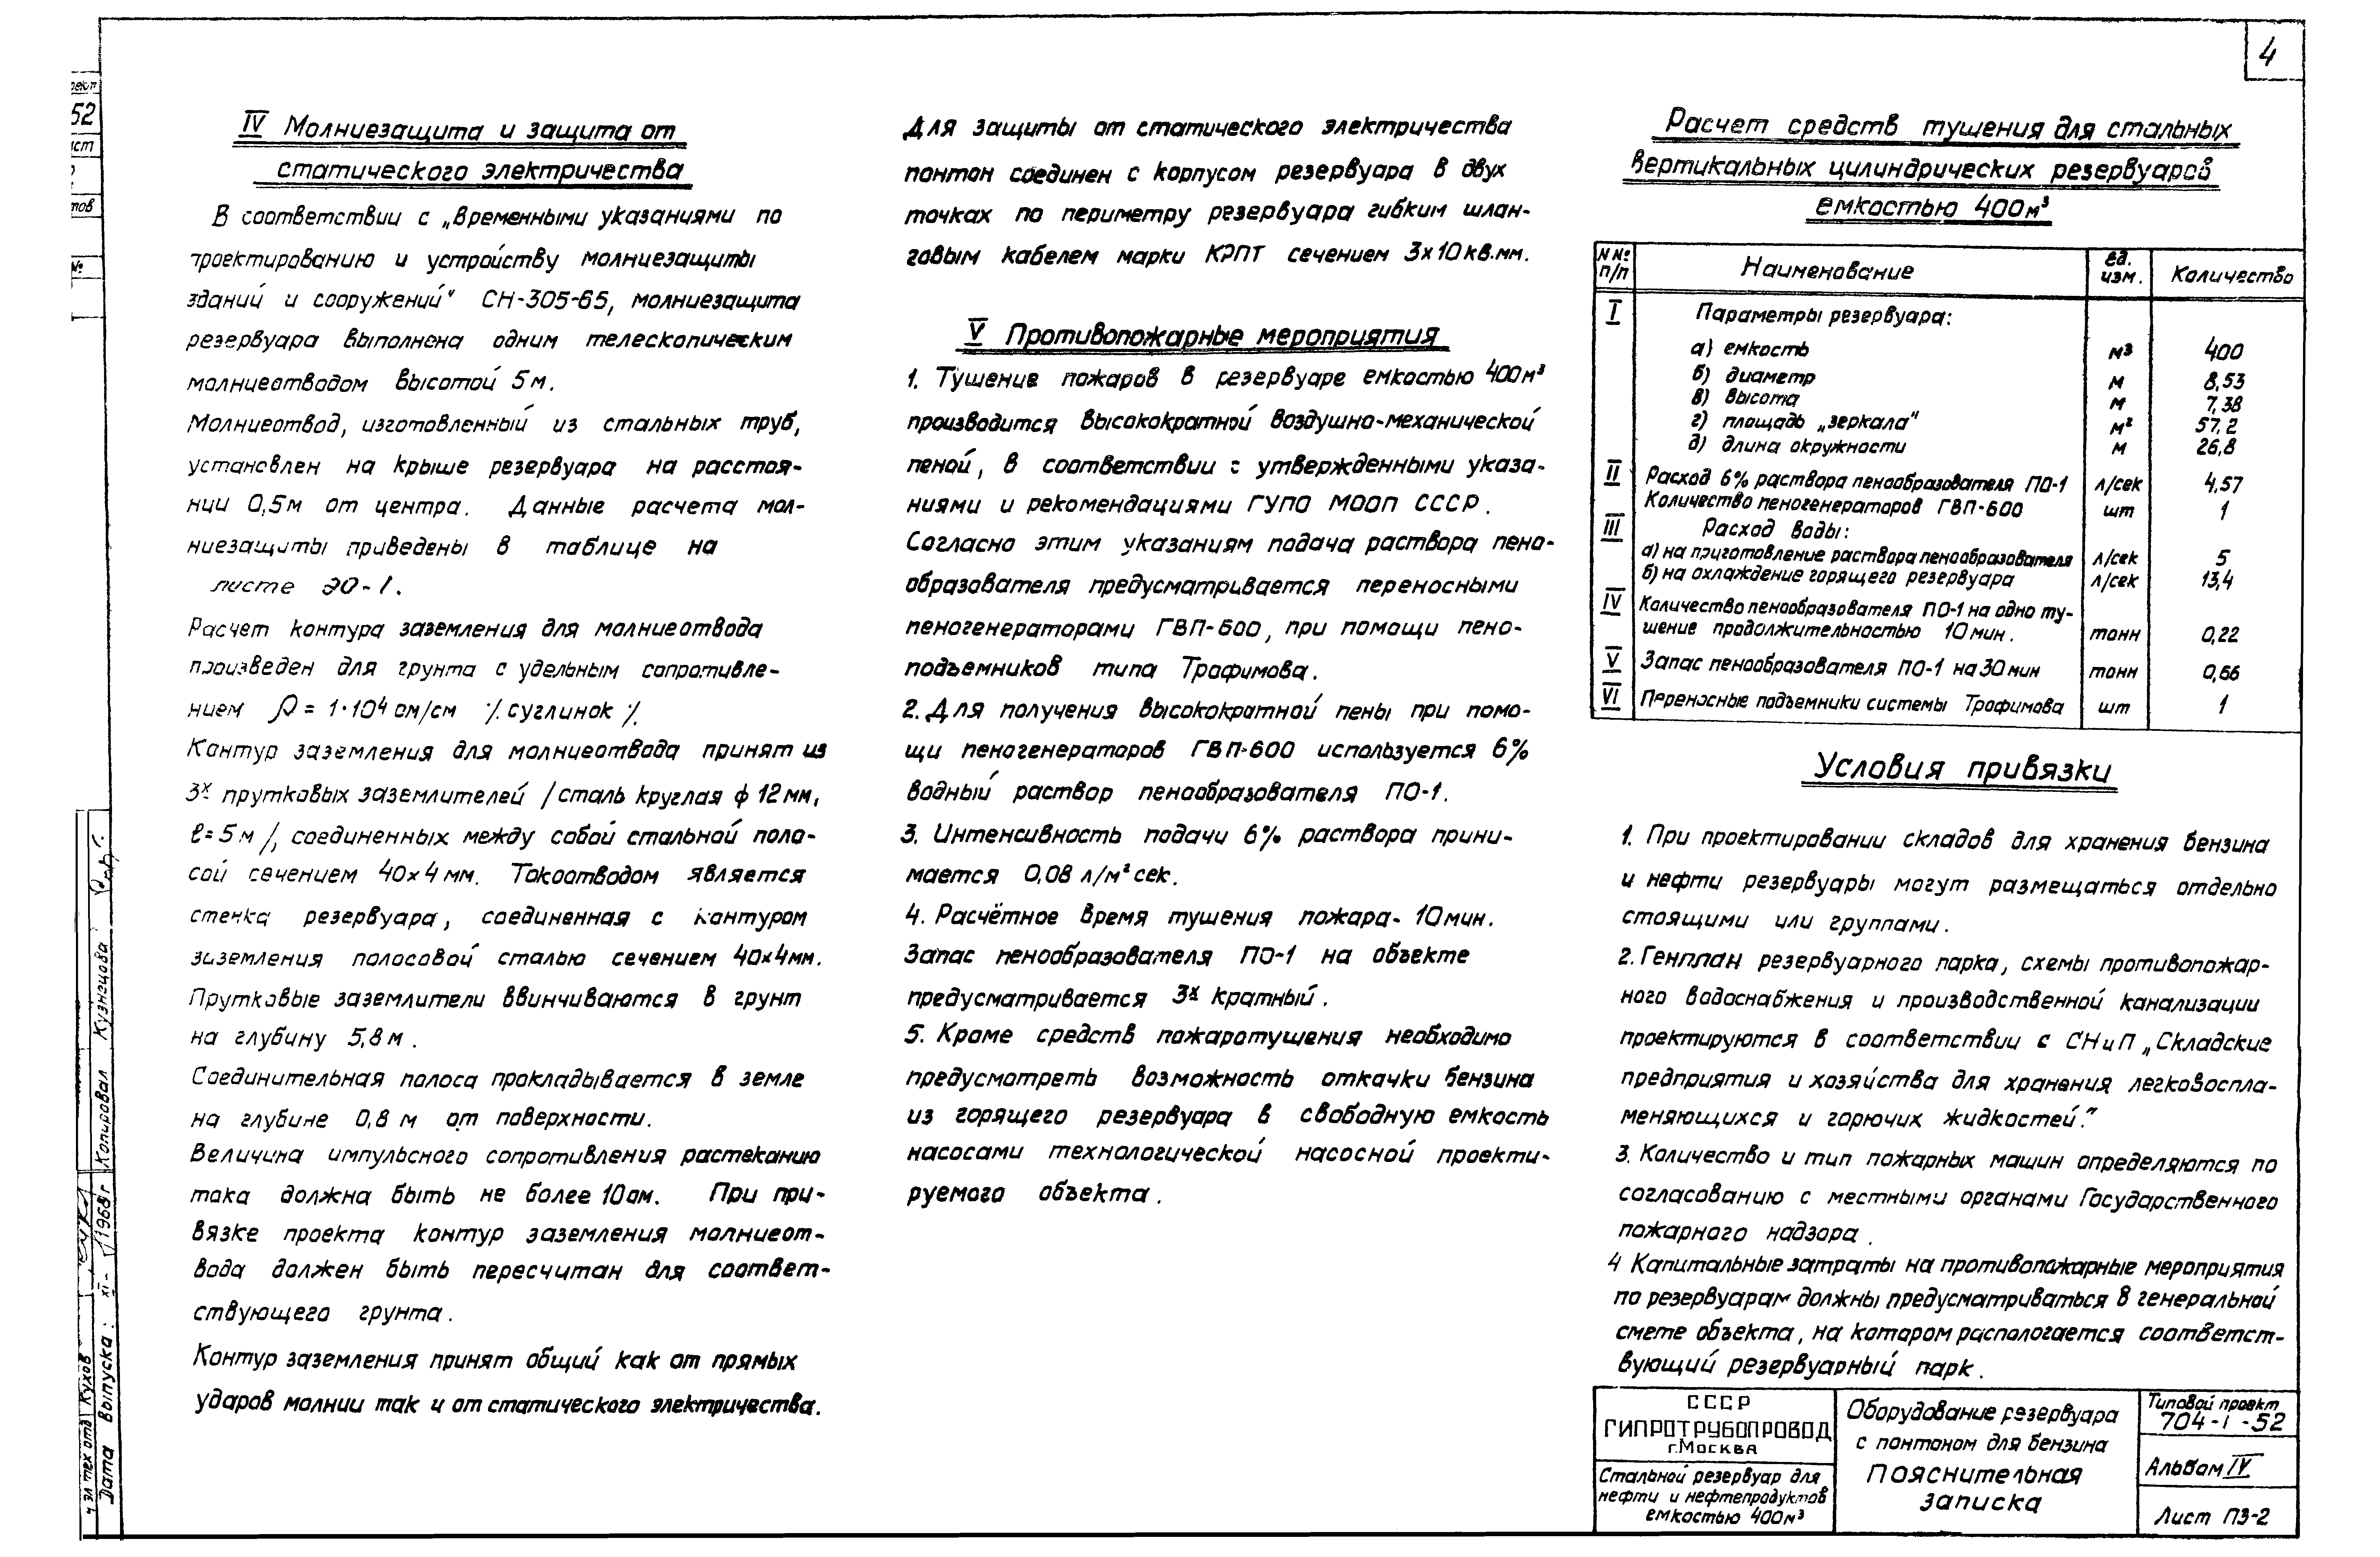 4
52
IV Молниезащита и защита от
статического электричества
В соответствии с „Временными указаниями по
проектированию и устройству молниезащиты
зданий и сооружений“ СН-305-65, молниезащита
резервуара выполнена одним телескопическим
молниеотводом высотой 5м.
Молниеотвод, изготовленный из стальных труб,
установлен на крыше резервуара на расстоя-
нии 0,5м от центра. Данные расчета мол-
ниезащиты приведены в таблице на
листе ЭО-1.
Расчет контура заземления для молниеотвода
произведен для грунта с удельным сопротивле-
нием ρ = 1·10⁴ ом/см /суглинок/.
Контур заземления для молниеотвода принят из
3х прутковых заземлителей /сталь круглая ф 12мм,
ℓ=5м/, соединенных между собой стальной поло-
сой сечением 40х4мм. Токоотводом является
стенка резервуара, соединенная с контуром
заземления полосовой сталью сечением 40х4мм.
Прутковые заземлители ввинчиваются в грунт
на глубину 5,8м.
Соединительная полоса прокладывается в земле
на глубине 0,8 м от поверхности.
Величина импульсного сопротивления растеканию
тока должна быть не более 10ом. При при-
вязке проекта контур заземления молниеот-
вода должен быть пересчитан для соответ-
ствующего грунта.
Контур заземления принят общий как от прямых
ударов молнии так и от статического электричества.
Для защиты от статического электричества
понтон соединен с корпусом резервуара в двух
точках по периметру резервуара гибким шлан-
говым кабелем марки КРПТ сечением 3х10кв.мм.
V Противопожарные мероприятия
1. Тушение пожаров в резервуаре емкостью 400м³
производится высокократной воздушно-механической
пеной, в соответствии с утвержденными указа-
ниями и рекомендациями ГУПО МООП СССР.
Согласно этим указаниям подача раствора пено-
образователя предусматривается переносными
пеногенераторами ГВП-600, при помощи пено-
подъемников типа Трофимова.
2. Для получения высокократной пены при помо-
щи пеногенераторов ГВП-600 используется 6%
водный раствор пенообразователя ПО-1.
3. Интенсивность подачи 6% раствора прини-
мается 0,08 л/м² сек.
4. Расчётное время тушения пожара- 10мин.
Запас пенообразователя ПО-1 на объекте
предусматривается 3х кратный.
5. Кроме средств пожаротушения необходимо
предусмотреть возможность откачки бензина
из горящего резервуара в свободную емкость
насосами технологической насосной проекти-
руемого объекта.
Расчет средств тушения для стальных
вертикальных цилиндрических резервуаров
емкостью 400м³
N№ п/п Наименование ед. изм. Количество
I Параметры резервуара:
а) емкость м³ 400
б) диаметр м 8,53
в) высота м 7,38
г) площадь „зеркала“ м² 57,2
д) длина окружности м 26,8
II Расход 6% раствора пенообразователя ПО-1 л/сек 4,57
Количество пеногенераторов ГВП-600 шт 1
III Расход воды:
а) на приготовление раствора пенообразователя л/сек 5
б) на охлаждение горящего резервуара л/сек 13,4
IV Количество пенообразователя ПО-1 на одно ту-
шение продолжительностью 10мин. тонн 0,22
V Запас пенообразователя ПО-1 на 30мин тонн 0,66
VI Переносные подъемники системы Трофимова шт 1
Условия привязки
1. При проектировании складов для хранения бензина
и нефти резервуары могут размещаться отдельно
стоящими или группами.
2. Генплан резервуарного парка, схемы противопожар-
ного водоснабжения и производственной канализации
проектируются в соответствии с СНиП „Складские
предприятия и хозяйства для хранения легковоспла-
меняющихся и горючих жидкостей."
3. Количество и тип пожарных машин определяются по
согласованию с местными органами Государственного
пожарного надзора.
4 Капитальные затраты на противопожарные мероприятия
по резервуарам должны предусматриваться в генеральной
смете объекта, на котором распологается соответст-
вующий резервуарный парк.
СССР
ГИПРОТРУБОПРОВОД
г.Москва
Стальной резервуар для
нефти и нефтепродуктов
емкостью 400м³
Оборудование резервуара
с понтоном для бензина
Пояснительная
записка
Типовой проект
704-1-52
Альбом IV
Лист ПЗ-2
Дата выпуска: XI- 1968г Копировал Кузнецова
Кухов